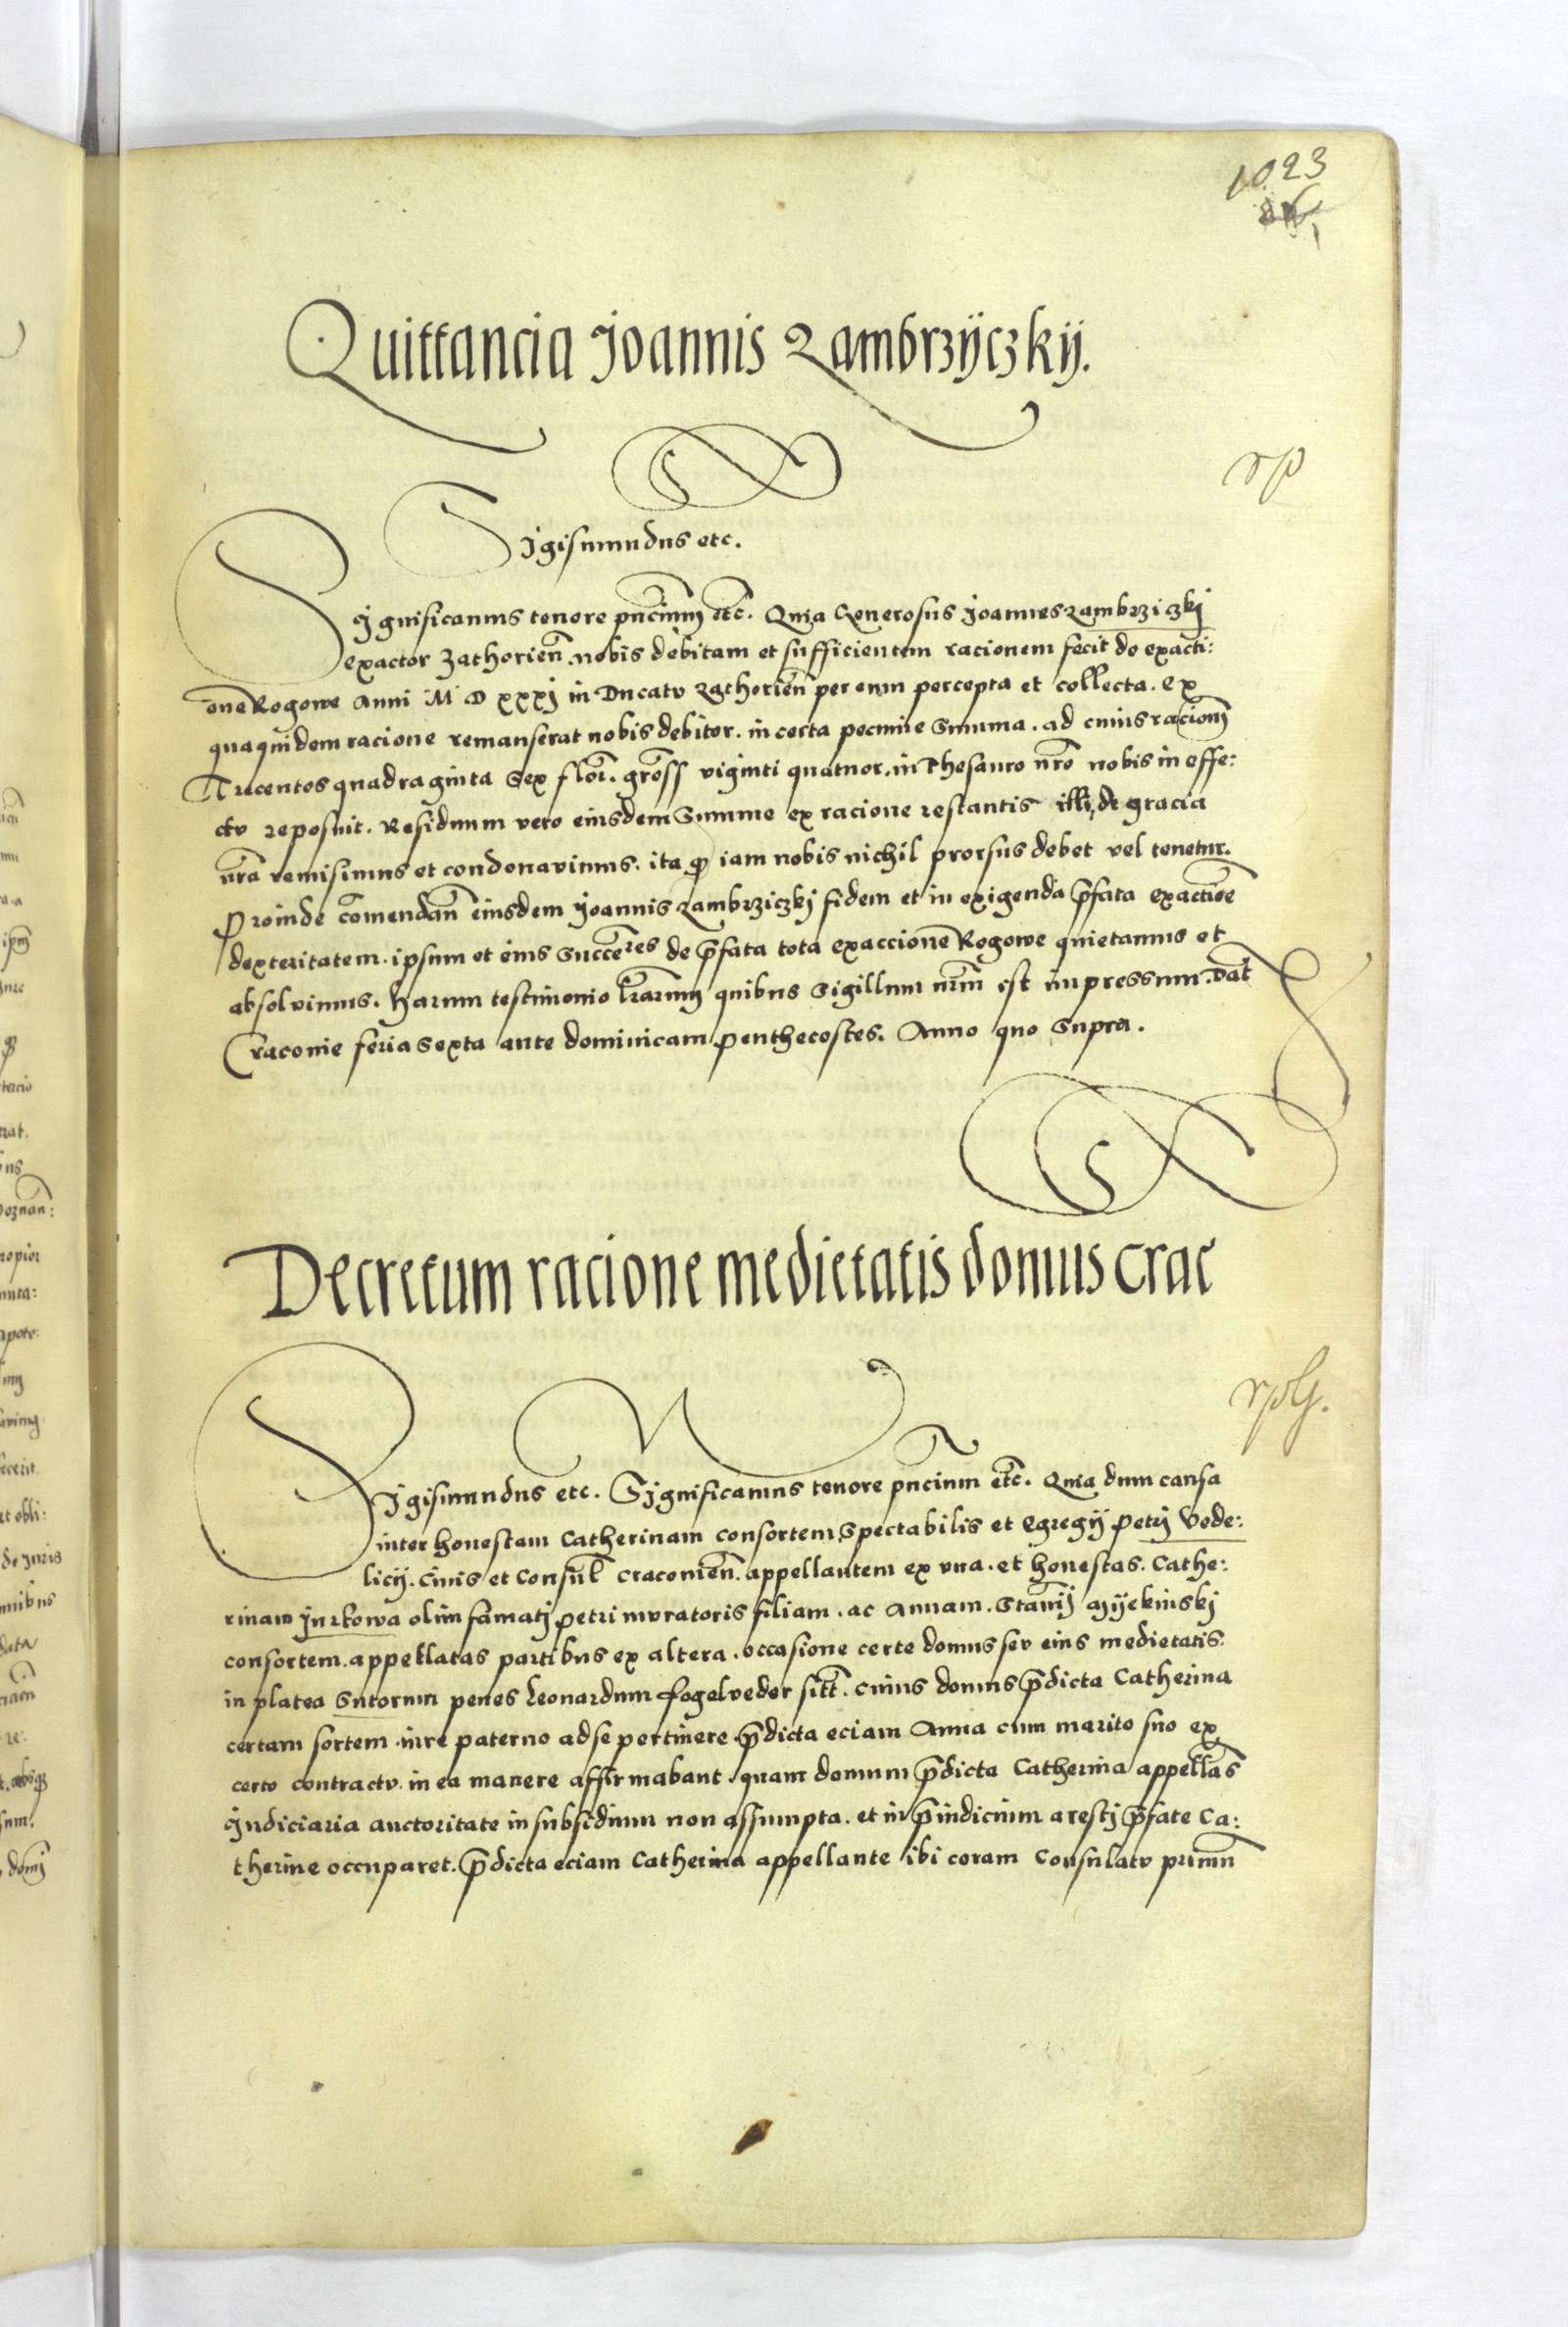 1023
Quittancia Joannis Zambrzÿczkÿ.
rp
Sigismundus etc.
Significamus tenore pñcium etc̃. Quia Generosus Joannes Zambrzickj
exactor Zathorieñ. nobis debitam et sufficientem racionem fecit de exacti:
one Rogowe Anni M D xxxj in Ducatu Zathorieñ per eum percepta et collecta. Ex
quaquidem racione remanserat nobis debitor. in certa pecunie Summa. ad cuius racionem
Trecentos quadraginta Sex floř. gross viginti quatuor. in Thesauro nr̃o nobis in effe:
ctu reposuit. Residuum vero eiusdem Summe ex racione restantis illi de gracia
nr̃a remisimus et condonavimus. ita q̃ iam nobis nichil prorsus debet vel tenetur.
Proinde com̃endañ eiusdem Joannis Zambrziczkj fidem et in exigenda p̃fata exactiõe
dexteritatem. ipsum et eius Succes̃res de p̃fata tota exaccione Rogowe quietamus et
absolvimus. Harum testimonio lr̃arum quibus Sigillum nr̃m est impressum. Dat̃
Cracovie feria Sexta ante dominicam Penthecostes. Anno quo Supra.
Decretum racione medietatis domus Crac̃
rplg.
Sigismundus etc. Significamus tenore pñcium etc̃. Quia dum causa
inter honestam Catherinam consortem Spectabilis et Egregÿ Petrj Vede:
licÿ. Civis et Consul̃ Cracovieñ. appellantem ex vna. et honestas. Cathe:
rinam Jurkowa olim famatj Petri muratoris filiam. ac Annam. Stañij Mÿekinskj
consortem. appellatas partibus ex altera. occasione certe domus seu eius medietatis.
in platea Sutorum penes Leonardum Fogelveder sitt̃. cuius domus p̃dicta Catherina
certam sortem iure paterno ad se pertinere. p̃dicta eciam Anna cum marito suo ex
certo contractu. in ea manere affirmabant. quam domum p̃dicta Catherina appellãs
Judiciaria auctoritate in subsidium non assumpta. et in p̃iudicium arestj p̃fate Ca:
therine occuparet. p̃dicta eciam Catherina appellante ibi coram Consulatu primũ